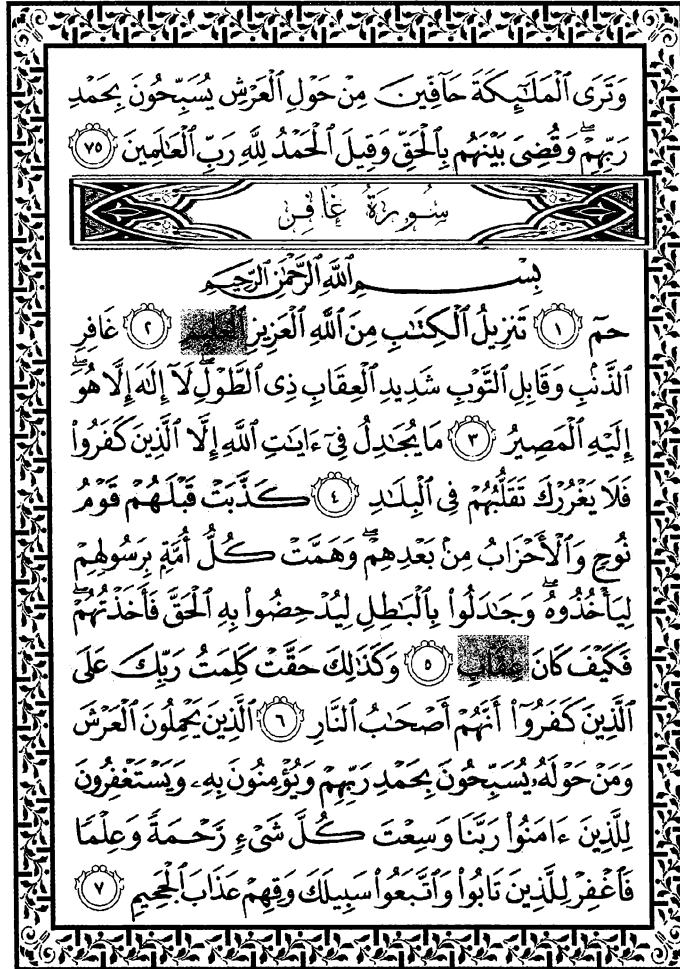 وَتَرَى ٱلْمَلَٰٓئِكَةَ حَآفِّينَ مِنْ حَوْلِ ٱلْعَرْشِ يُسَبِّحُونَ بِحَمْدِ
رَبِّهِمْ ۖ وَقُضِىَ بَيْنَهُم بِٱلْحَقِّ وَقِيلَ ٱلْحَمْدُ لِلَّهِ رَبِّ ٱلْعَٰلَمِينَ ٧٥
سُورَةُ غَافِرٍ
بِسْمِ ٱللَّهِ ٱلرَّحْمَٰنِ ٱلرَّحِيمِ
حمٓ ١ تَنزِيلُ ٱلْكِتَٰبِ مِنَ ٱللَّهِ ٱلْعَزِيزِ ٱلْعَلِيمِ ٢ غَافِرِ
ٱلذَّنۢبِ وَقَابِلِ ٱلتَّوْبِ شَدِيدِ ٱلْعِقَابِ ذِى ٱلطَّوْلِ ۖ لَآ إِلَٰهَ إِلَّا هُوَ ۖ
إِلَيْهِ ٱلْمَصِيرُ ٣ مَا يُجَٰدِلُ فِىٓ ءَايَٰتِ ٱللَّهِ إِلَّا ٱلَّذِينَ كَفَرُوا۟
فَلَا يَغْرُرْكَ تَقَلُّبُهُمْ فِى ٱلْبِلَٰدِ ٤ كَذَّبَتْ قَبْلَهُمْ قَوْمُ
نُوحٍ وَٱلْأَحْزَابُ مِنۢ بَعْدِهِمْ ۖ وَهَمَّتْ كُلُّ أُمَّةٍۭ بِرَسُولِهِمْ
لِيَأْخُذُوهُ ۖ وَجَٰدَلُوا۟ بِٱلْبَٰطِلِ لِيُدْحِضُوا۟ بِهِ ٱلْحَقَّ فَأَخَذْتُهُمْ ۖ
فَكَيْفَ كَانَ عِقَابِ ٥ وَكَذَٰلِكَ حَقَّتْ كَلِمَتُ رَبِّكَ عَلَى
ٱلَّذِينَ كَفَرُوٓا۟ أَنَّهُمْ أَصْحَٰبُ ٱلنَّارِ ٦ ٱلَّذِينَ يَحْمِلُونَ ٱلْعَرْشَ
وَمَنْ حَوْلَهُۥ يُسَبِّحُونَ بِحَمْدِ رَبِّهِمْ وَيُؤْمِنُونَ بِهِۦ وَيَسْتَغْفِرُونَ
لِلَّذِينَ ءَامَنُوا۟ رَبَّنَا وَسِعْتَ كُلَّ شَىْءٍ رَّحْمَةً وَعِلْمًا
فَٱغْفِرْ لِلَّذِينَ تَابُوا۟ وَٱتَّبَعُوا۟ سَبِيلَكَ وَقِهِمْ عَذَابَ ٱلْجَحِيمِ ٧